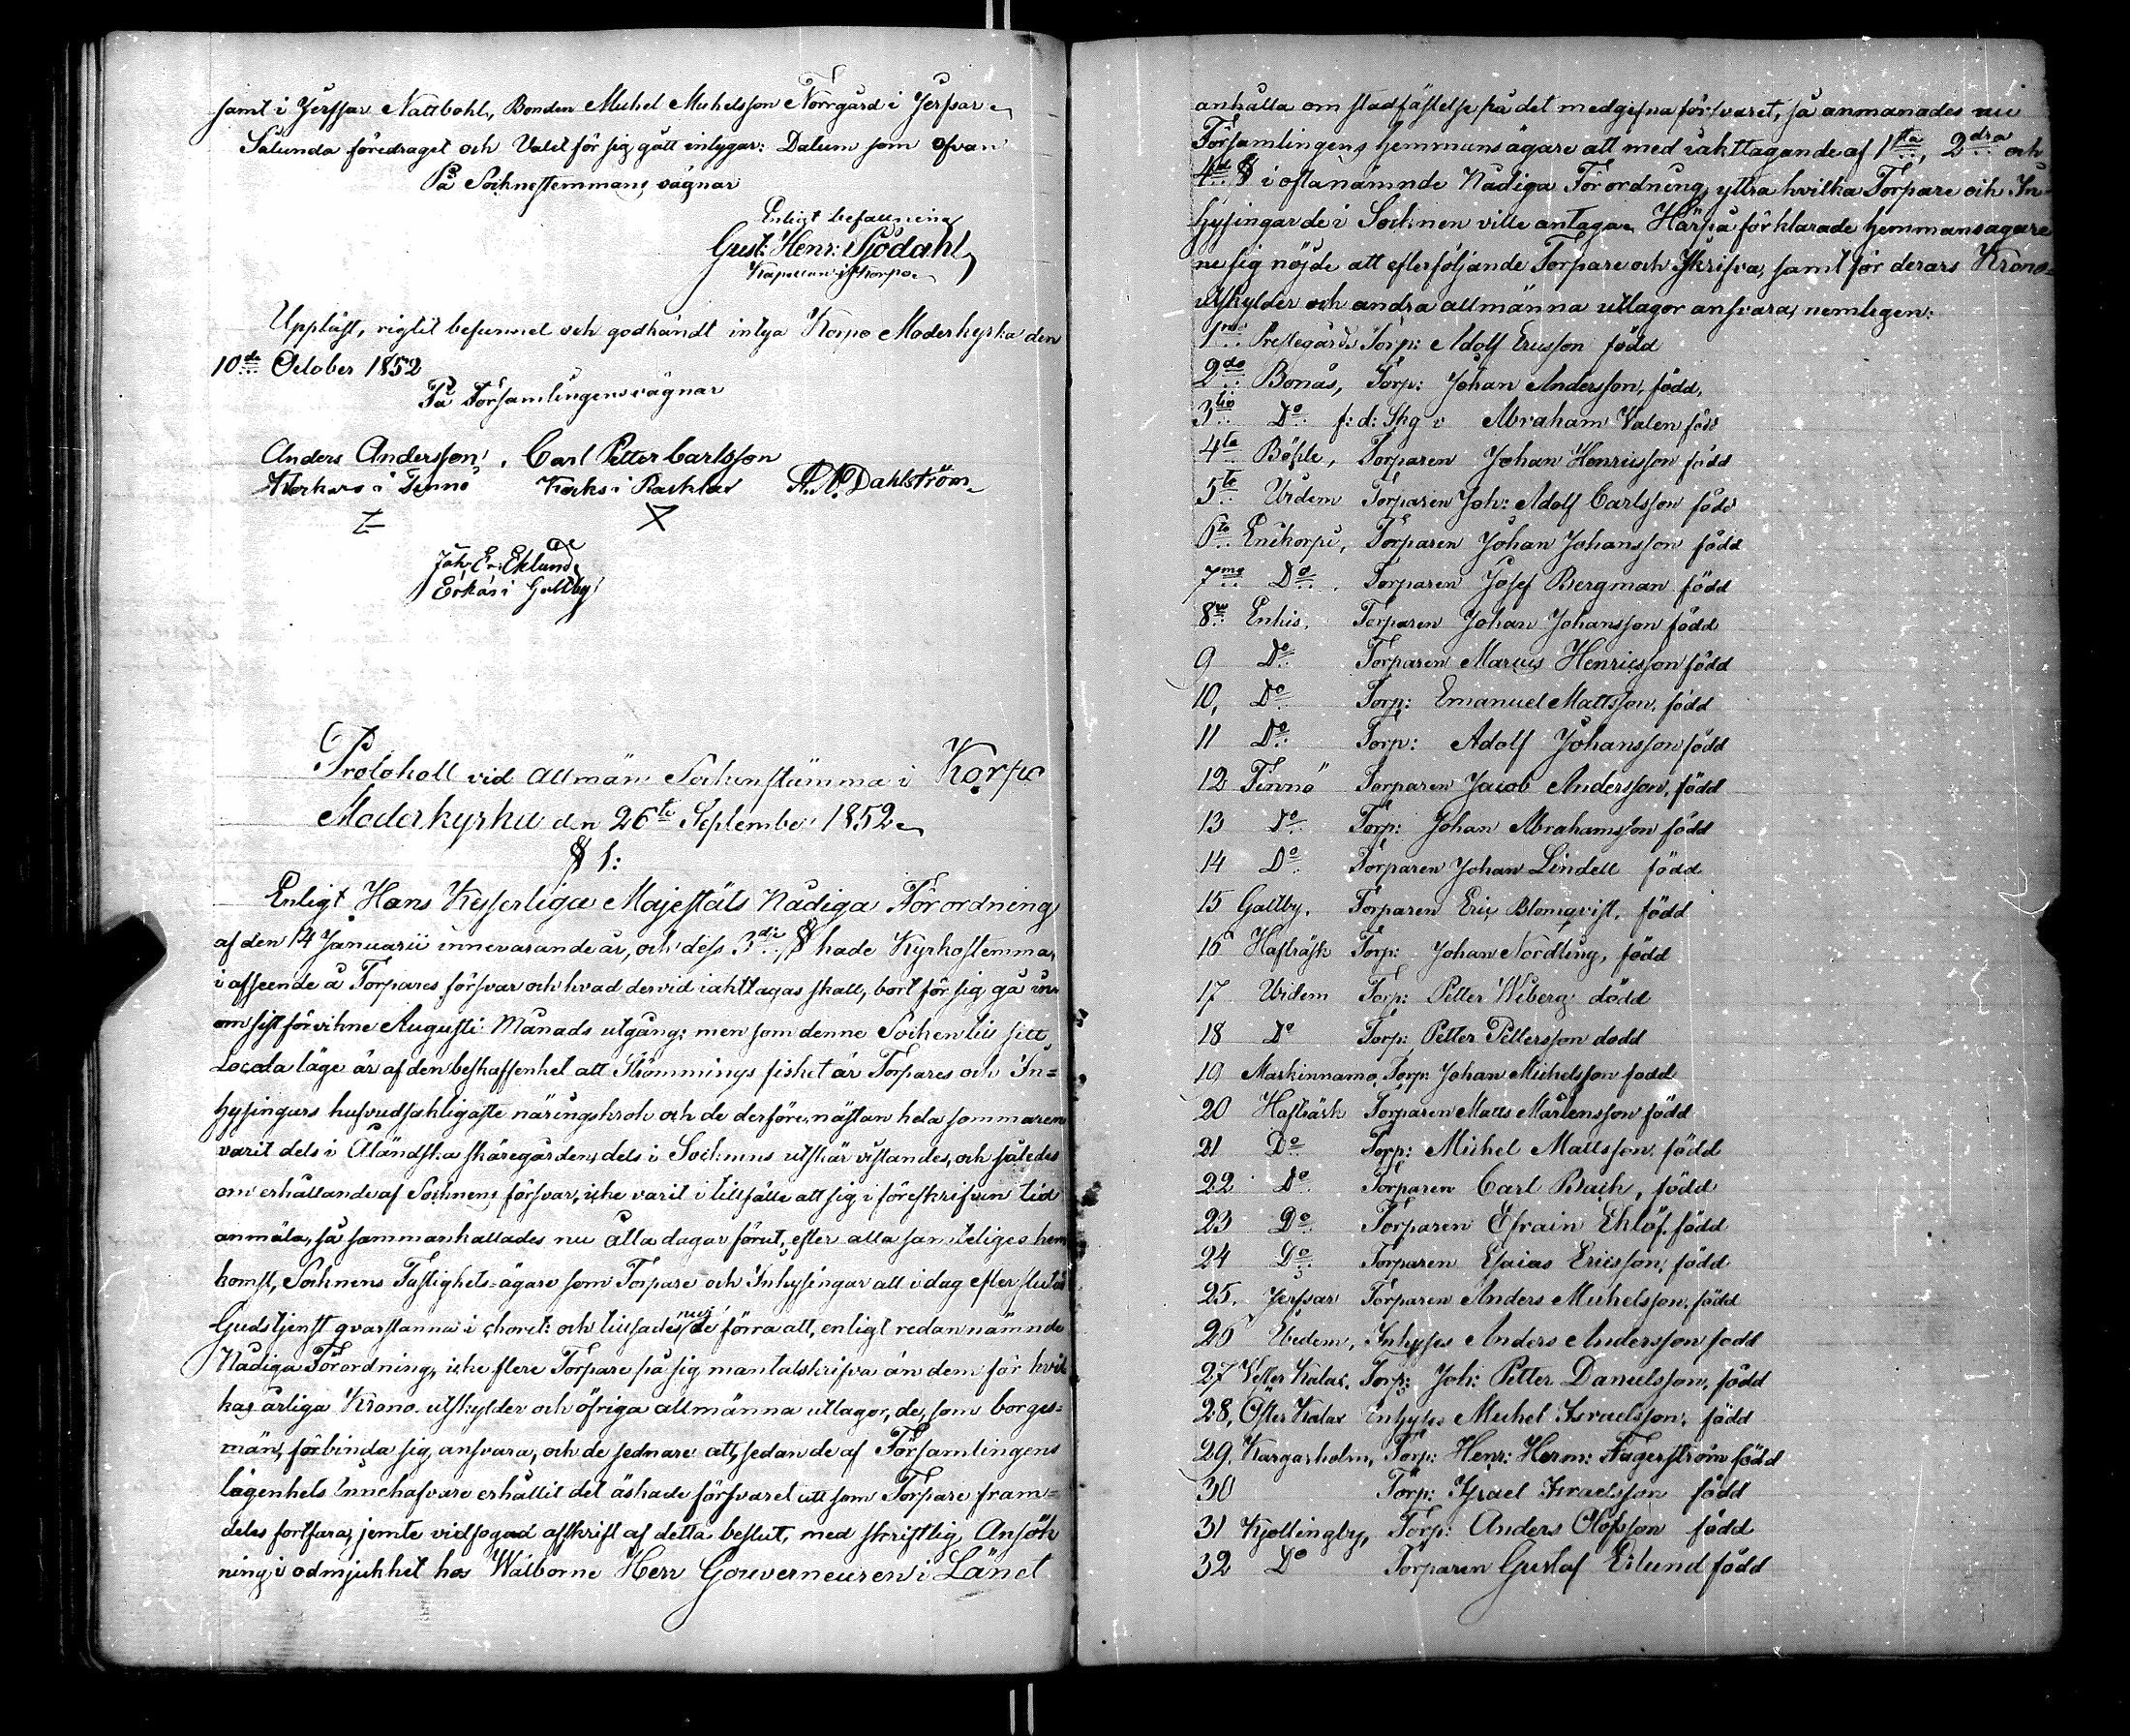 samt i Jerssar Nattbohl, Bonden Michel Michelsson Norrgård i Jerssar
Sålunda föredraget och Valet för sig gått intygar: Datum som ofvan
På Socknestemmans vägnar
Enligt befallning
Gust: Henr: Sjödahl
Kapellan i Korpo
Uppläst, rigtit befunnet och godkändt intya Korpo Moderkyrka den
10de October 1852
På Församlingens vägnar
Anders Andersson, Carl Petter Carlsson
Korkars i Finnö Kocks i Rasklax A. N. Dahlström
Joh: E: Eklund
Eckis i Galtby
Protokoll vid Allmän Sockenstämma i Korpo
Moderkyrka den 26te September 1852
§ 1:
Enligt Hans Kejserliga Majestäts Nådiga Förordning
af den 14 Januarii innevarande år, och dess 3die § hade Kyrkostemma,
i afseende å Torpares försvar och hvad dervid iakttagas skall, bort för sig gå in-
om sist förvikne Augusti Månads utgång; men som denne Socken till sitt
Locala läge är af den beskaffenhet att Strömmings fisket är Torpares och In-
hysingars hufvudsakligaste näringskrok och de derföre, nästan hela sommaren
varit dels i Åländska skäregården, dels i Socknens utskär vistandes, och således
om erhållande af Socknens försvar, icke varit i tillfälle att sig i föreskrifven tid
anmäla, så sammankallades nu åtta dagar förut, efter alla samteliges hem
komst, Socknens Fastighets-ägare som Torpare och Inhysingar att i dag efter slutad
Gudstjenst qvarstanna i choret: och tillsades nu de förra att, enligt redan nämnde
Nådiga Förordning, icke flere Torpare på sig mantalskrifva än dem för hvil
kas årliga Krono utskylder och öfriga allmänna utlagor, de, som borges-
män, förbinda sig ansvara, och de sednare att, sedan de af Församlingens
lägenhets Innehafvare erhållit det äskade försvaret att som Torpare fram-
deles fortfara, jemte vidfogad afskrift af detta beslut, med skriftlig Ansök
ning i ödmjukhet hos Wälborne Herr Gouverneuren i Länet
anhålla om stadfästelse på det medgifna försvaret, så anmanades nu
Församlingens hemmansägare att med iakttagande af 1sta, 2dra och
4de § i oftanämnde Nådiga Förordning, yttra hvilka Torpare och In-
hysingar de i Socknen ville antaga. Härpå förklarade hemmansägare
ne sig nöjde att efterföljande Torpare och Skrifva, samt för deras Krono-
utskylder och andra allmänna utlagor ansvara, nemligen:
1mo Prestegårds Torp: Adolf Ericsson född
2do Bonäs, Torp: Johan Andersson, född,
3tio Do f: d: Skg Abraham Valen född
4to Böhle, Torparen Johan Henricsson född
5to Urdem Torparen Joh: Adolf Carlsson född
6to Enikorpe, Torparen Johan Johansson född
7mo Do. Torparen Josef Bergman född
8vo Enkis. Torparen Johan Johansson född
9 Do Torparen Marcus Henricsson född
10, Do Torp: Emanuel Mattsson, född
11 Do Torp: Adolf Johansson född
12 Finnö Torparen Jacob Andersson, född
13 Do Torp: Johan Abrahamsson född
14 Do Torparen Johan Lindell född
15 Galtby. Torparen Eric Blomqvist, född
16 Hafträsk Torp: Johan Nordling, född
17 Urdem Torp: Petter Wiberg dödd
18 Do Torp: Petter Pettersson dödd
19 Markinnamo. Torp: Johan Michelsson född
20 Hafträsk Torparen Matts Mårtensson född
21 Do Torp: Michel Mattsson, född
22 Do Torparen Carl Back, född
23 Do Torparen Efraim Eklöf, född
24 Do Torparen Esaias Ericsson, född
25. Jerssar Torparen Anders Michelsson, född
26 Urdem, Inhyses Anders Andersson född
27 Vester Kalax, Torp: Joh: Petter Danielsson, född
28, Öster Kalax Inhyses Michel Israelsson, född
29, Kargarholm, Torp: Henr: Herm: Fagerström född
30 Torp: Israel Israelsson född
31 Kjottingby, Torp: Anders Olofsson född
32 Do Torparen Gustaf Edlund född